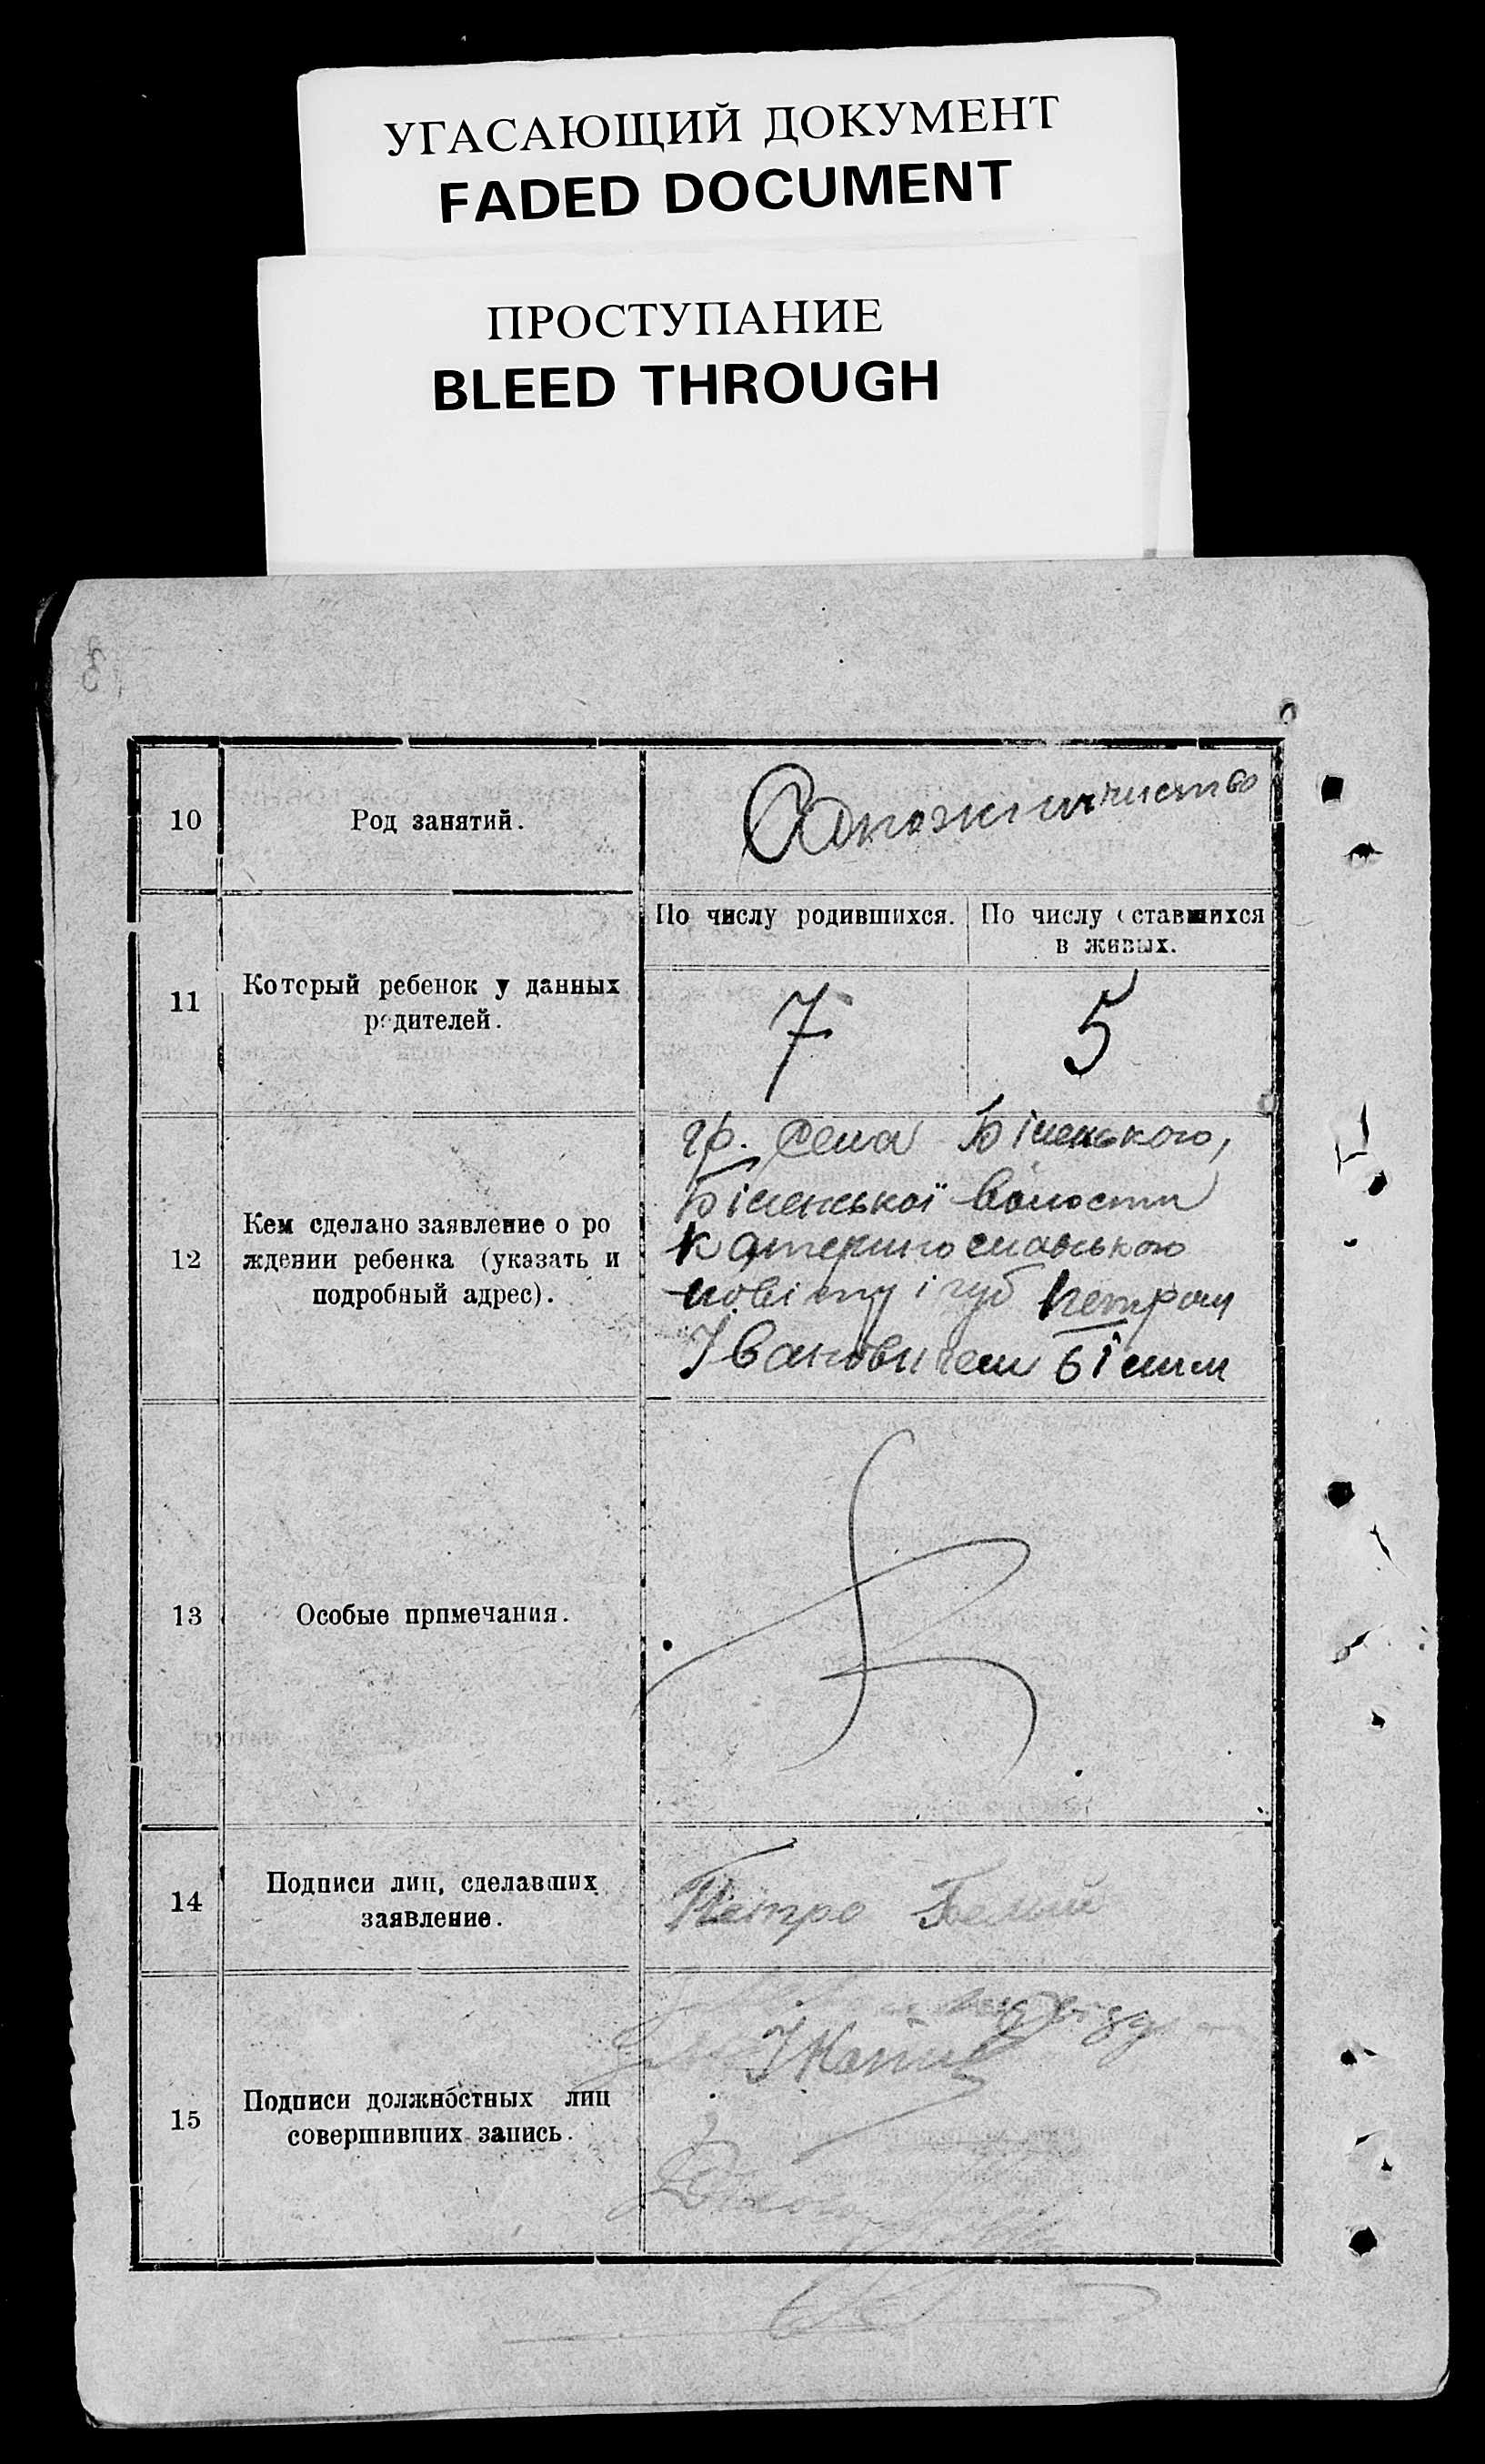 УГАСАЮЩИЙ ДОКУМЕНТ
FADED DOCUMENT
ПРОСТУПАНИЕ
BLEED THROUGH
10
Род занятий.
11
Который ребенок у данных
родителей.
По числу родившихся.
По числу оставшихся
в живых.
7
5
12
Кем сделано заявление о ро
ждении ребенка (указать и
подробный адрес).
гр. села Біленького,
Біленської волости
Катеринославського
повіту і губ Петром
Івановичем Білим
13
Особые примечания.
14
Подписи лиц, сделавших
заявление.
Петро Белый
15
Подписи должностных лиц
совершивших запись.